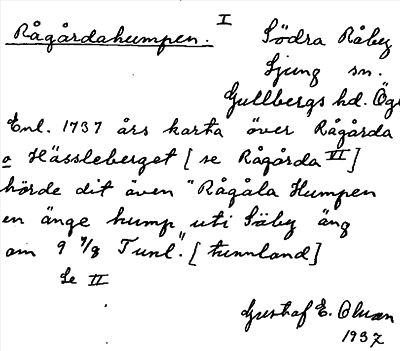 I
Rågårdahumpen. Södra Råby
Ljung sn.
Gullbergs hd. Ög
Enl. 1737 års karta över Rågårda
o Hässleberget [se Rågårda VI]
hörde dit även "Rågåla Humpen
en änge hump uti Säby äng
om 9 7/8 Tunl." [tunnland]
Se II
Gustaf E. Olsson
1937